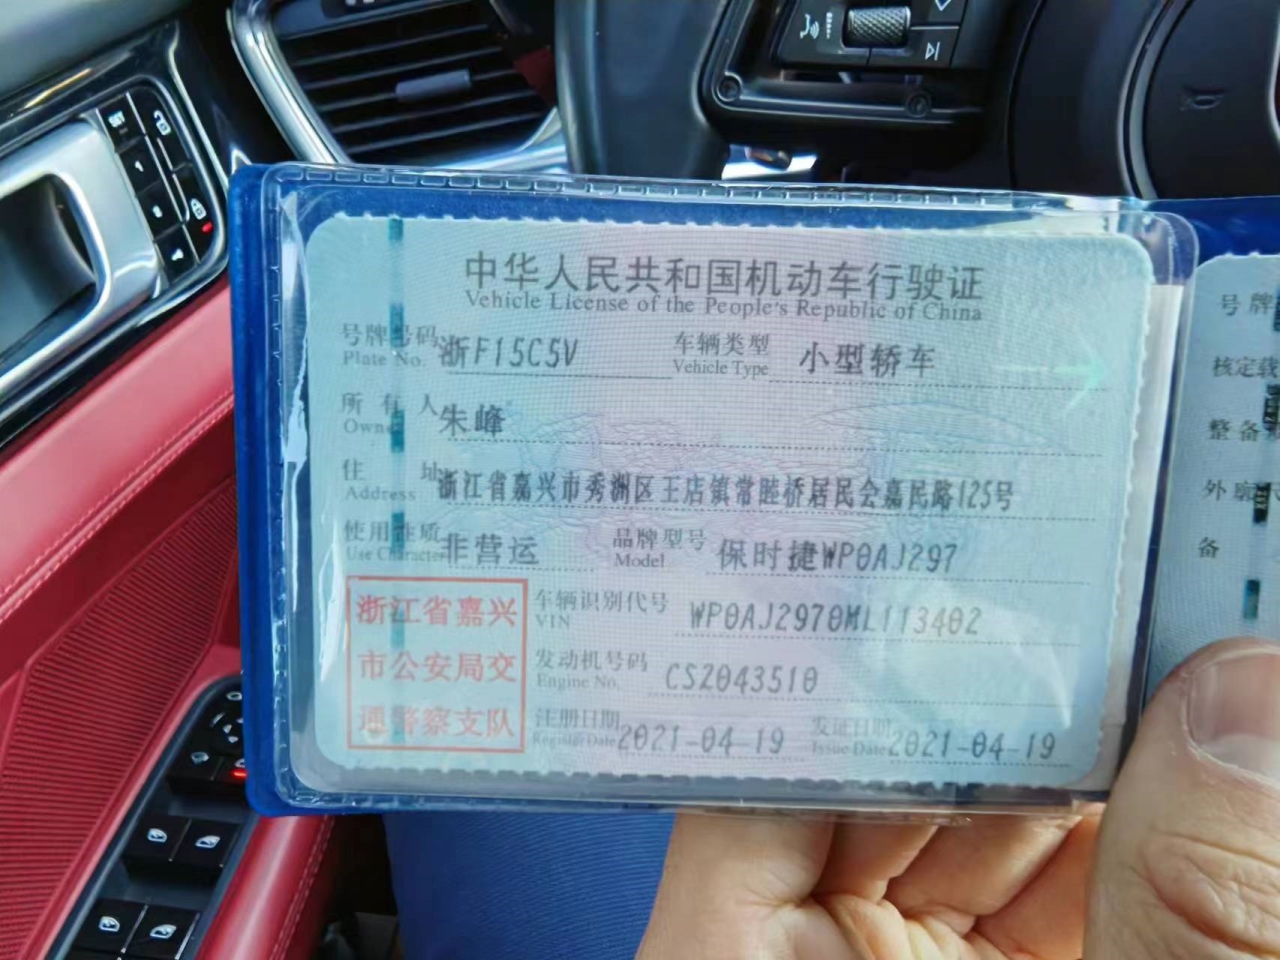 中华人民共和国机动车行驶证
Vehicle License of the People's Republic of China
号牌号码 浙F15C5V 车辆类型 小型轿车
Plate No. Vehicle Type
所有人 朱峰
Owner
住址 浙江省嘉兴市秀洲区王店镇常睦桥居民会嘉民路125号
Address
使用性质 非营运 品牌型号 保时捷WP0AJ297
Use Character Model
浙江省嘉兴
市公安局交
通警察支队
车辆识别代号 WP0AJ2970ML113402
VIN
发动机号码 CS2043510
Engine No.
注册日期 2021-04-19 发证日期 2021-04-19
Register Date Issue Date
号牌
核定载
整备
外廓
备